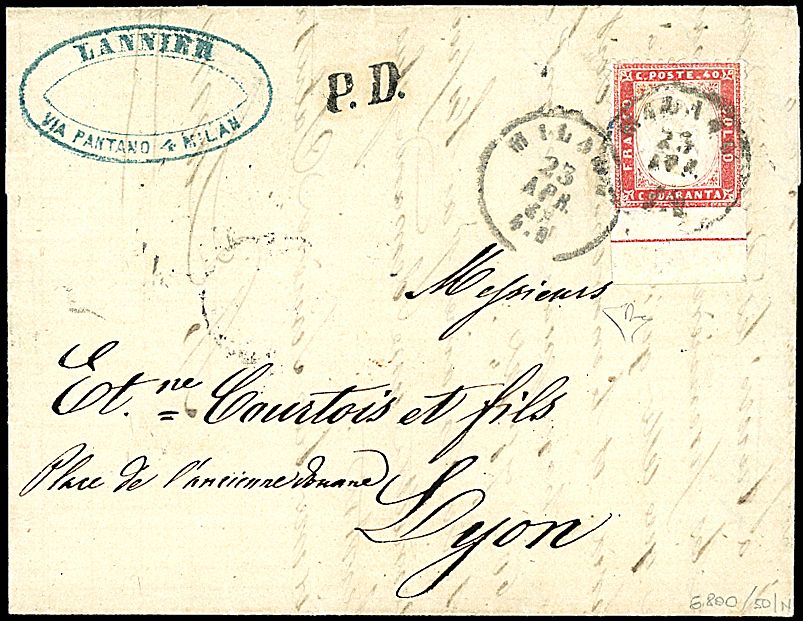 LANNIER
VIA PANTANO 4 MILAN
P. D.
C. POSTE. 40
FRANCO
BOLLO
C. QUARANTA
MILANO
23
APR.
MILANO
23
APR.
Messieurs
Et.ne Courtois et fils
Place de l'ancienne douane
Lyon
6.800/50/N